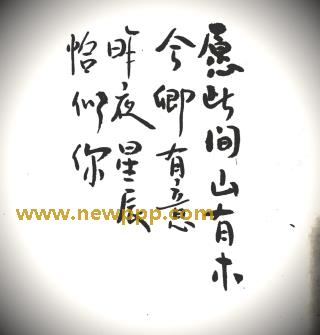 愿此间山有木
今卿有意
昨夜星辰
恰似你
www.newppp.com